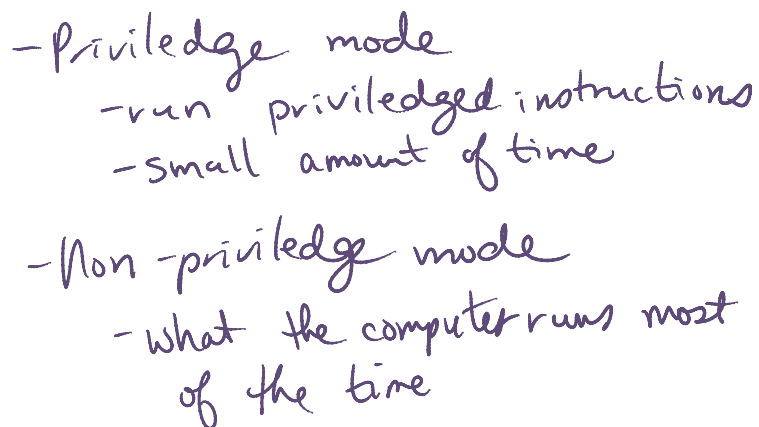 - Priviledge mode
- run priviledged instructions
- small amount of time
- Non-priviledge mode
- what the computer runs most
of the time